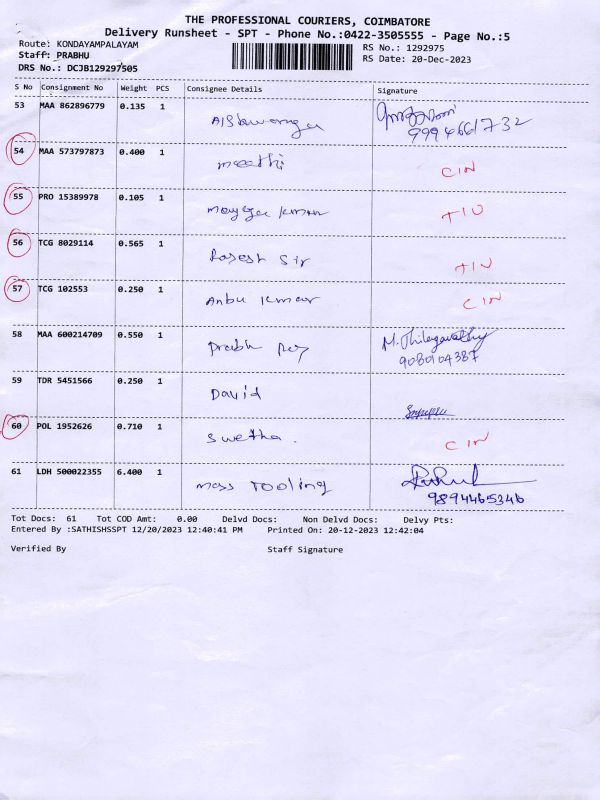 THE PROFESSIONAL COURIERS, COIMBATORE
Delivery Runsheet - SPT - Phone No.:0422-3505555 - Page No.:5
Route: KONDAYAMPALAYAM
RS No.: 1292975
Staff: PRABHU
RS Date: 20-Dec-2023
DRS No.: DCJB129297505
S No Consignment No Weight PCS Consignee Details Signature
53 MAA 862896779 0.135 1
9994661732
54 MAA 573797873 0.400 1 CIN
55 PRO 15389978 0.105 1 Kumar
56 TCG 8029114 0.565 1 Sir
57 TCG 102553 0.250 1 Anbu Kumar CIN
58 MAA 600214709 0.550 1 M. Thilagavathy
9080104387
59 TDR 5451566 0.250 1 David
60 POL 1952626 0.710 1 Swetha. CIN
61 LDH 500022355 6.400 1 mass Tooling
9894465346
Tot Docs: 61 Tot COD Amt: 0.00 Delvd Docs: Non Delvd Docs: Delvy Pts:
Entered By :SATHISHSSPT 12/20/2023 12:40:41 PM Printed On: 20-12-2023 12:42:04
Verified By Staff Signature